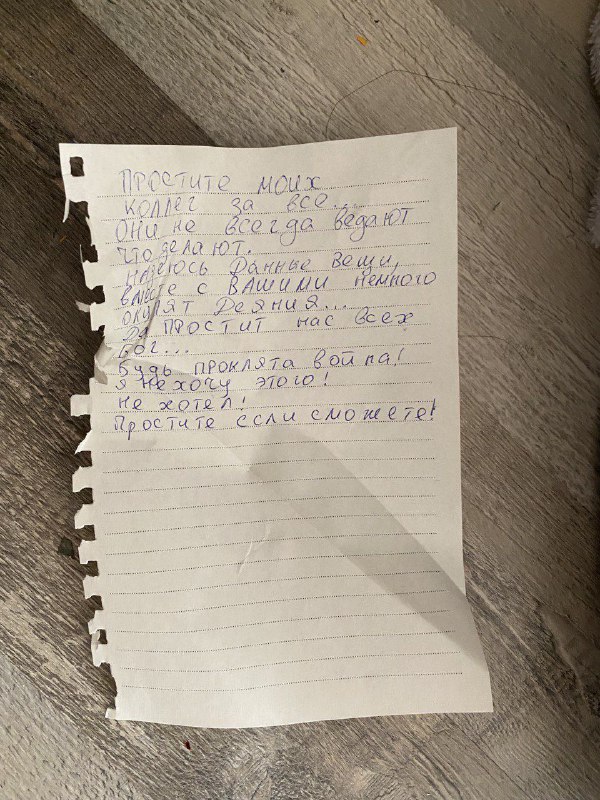 ПРОСТИТЕ МОИХ
КОЛЛЕГ ЗА ВСЕ...
ОНИ НЕ ВСЕГДА ВЕДАЮТ
ЧТО ДЕЛАЮТ.
НАДЕЮСЬ ДАННЫЕ ВЕЩИ,
ВМЕСТЕ С ВАШИМИ НЕМНОГО
ОКУПЯТ ДЕЯНИЯ...
ДА ПРОСТИТ НАС ВСЕХ
БОГ...
БУДЬ ПРОКЛЯТА ВОЙНА!
Я НЕ ХОЧУ ЭТОГО!
НЕ ХОТЕЛ!
ПРОСТИТЕ ЕСЛИ СМОЖЕТЕ!